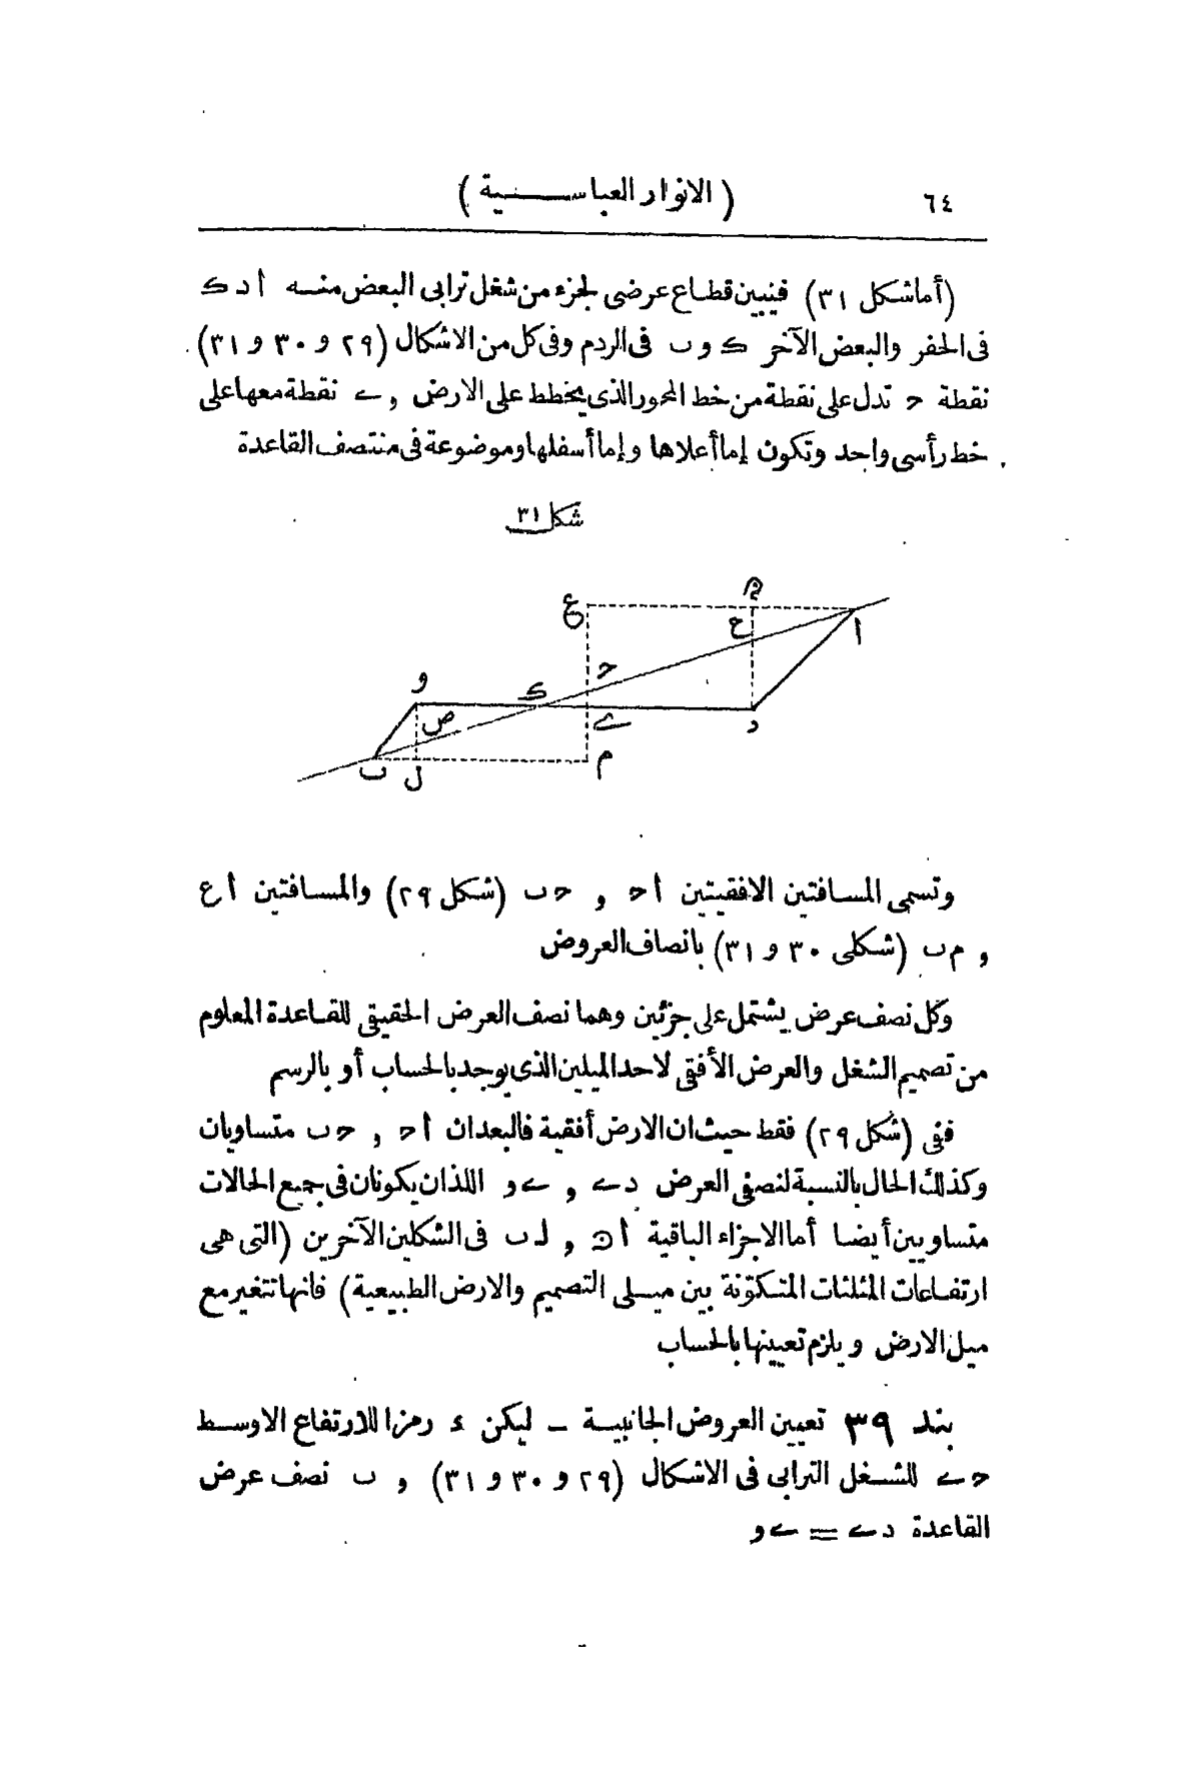 ٦٤ (الانوار العباسية)
(أما شكل ٣١) فيبين قطاع عرضى لجزء من شغل ترابى البعض منه ا د ك
فى الحفر والبعض الآخر ك و ب فى الردم وفى كل من الاشكال (٢٩ و ٣٠ و ٣١)
نقطة ح تدل على نقطة من خط المحور الذى يخطط على الارض و ے نقطة معها على
خط رأسى واحد وتكون إما أعلاها وإما أسفلها وموضوعة فى منتصف القاعدة
شكل ٣١
ع
ح
ا
ح
و
ك
ص
ے
د
م
ب
ل
وتسمى المسافتين الافقيتين ا ح و ح ب (شكل ٢٩) والمسافتين ا ع
و م ب (شكلى ٣٠ و ٣١) بانصاف العروض
وكل نصف عرض يشتمل على جزئين وهما نصف العرض الحقيقى للقاعدة المعلوم
من تصميم الشغل والعرض الأفقى لاحد الميلين الذى يوجد بالحساب أو بالرسم
ففى (شكل ٢٩) فقط حيث ان الارض أفقية فالبعدان ا ح و ح ب متساويان
وكذلك الحال بالنسبة لنصفى العرض د ے و ے و اللذان يكونان فى جميع الحالات
متساويين أيضا أما الاجزاء الباقية ا ه و ل ب فى الشكلين الآخرين (التى هى
ارتفاعات المثلثات المتكوّنة بين ميلى التصميم والارض الطبيعية) فانها تتغير مع
ميل الارض ويلزم تعيينها بالحساب
بند ٣٩ تعيين العروض الجانبية – ليكن ء رمزا للارتفاع الاوسط
ح ے للشغل الترابى فى الاشكال (٢٩ و ٣٠ و ٣١) و ب نصف عرض
القاعدة د ے = ے و